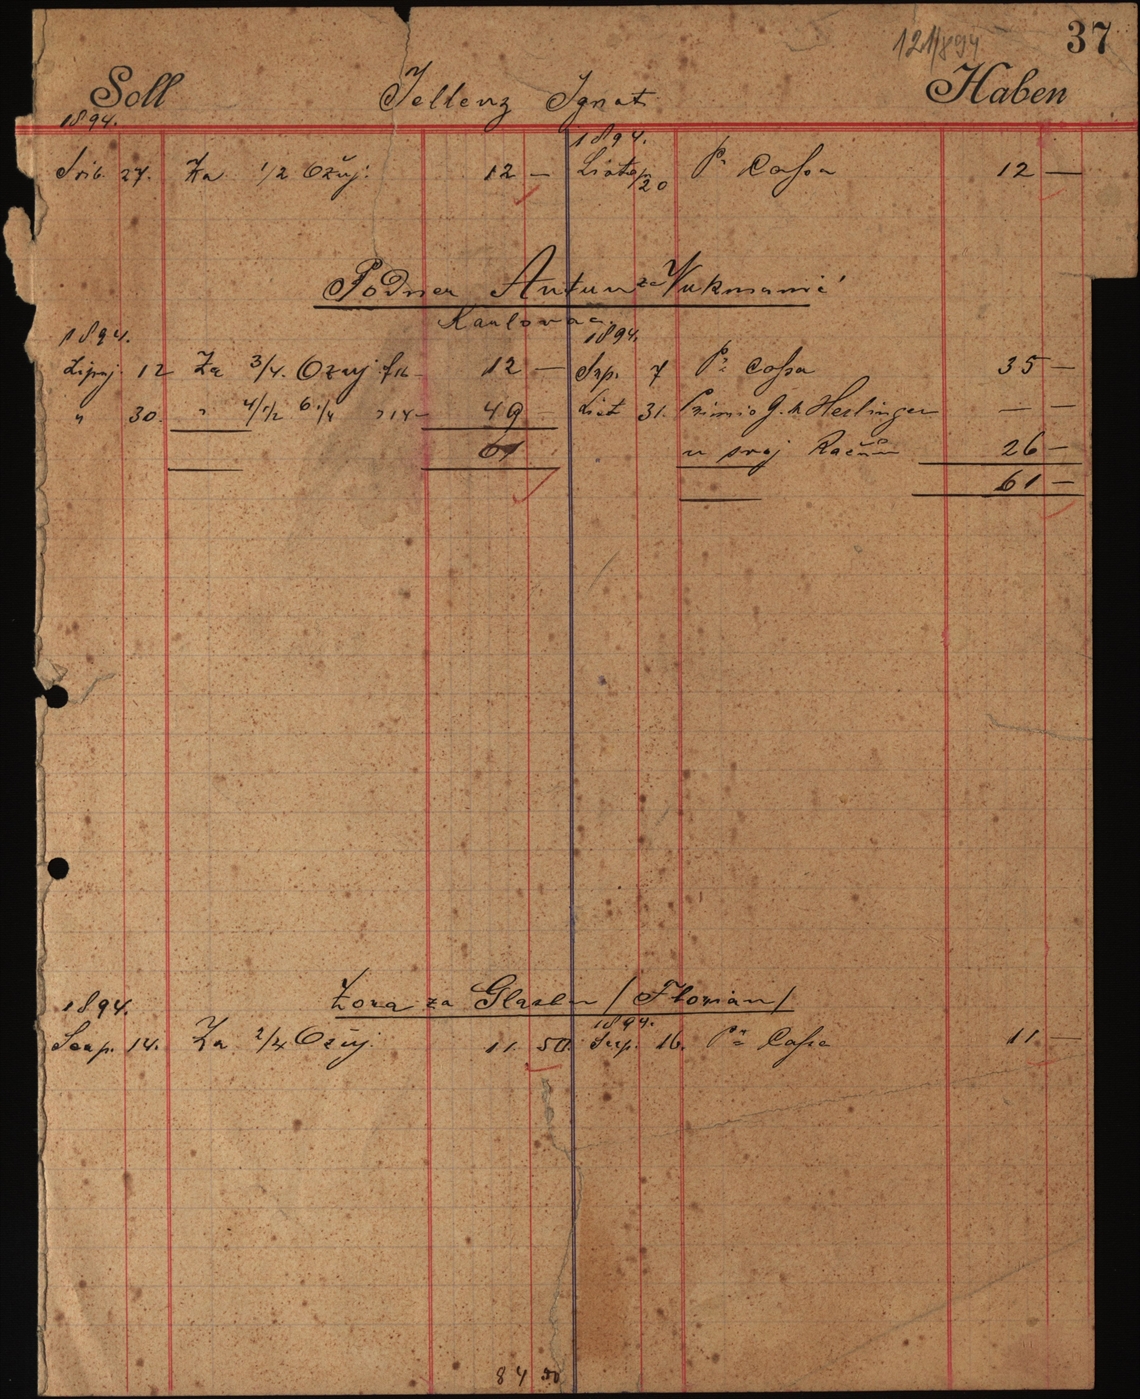 121/894 37
Soll Jellenz Ignat Haben
1894. 1894.
Srib. 27. Za 1/2 Ožuj. 12 — Listop. 20 Pr Cassa 12 —
Podner Antun za Vukmanić
Karlovac
1894. 1894.
Lipnj 12 Za 3/4 Ožuj 12 — Srp. 7 Pr Cassa 35 —
" 30. " 4/1/2 6 1/4 " 14 — 49 — List 31. Primio G. Herlinger — —
61 u svoj Račun 26 —
61 —
Zora za Glaslon / Florian /
1894. 1894.
Serp. 14. Za 2/4 Ožuj. 11 50 Serp. 16. Pr Casse 11 —
84 50